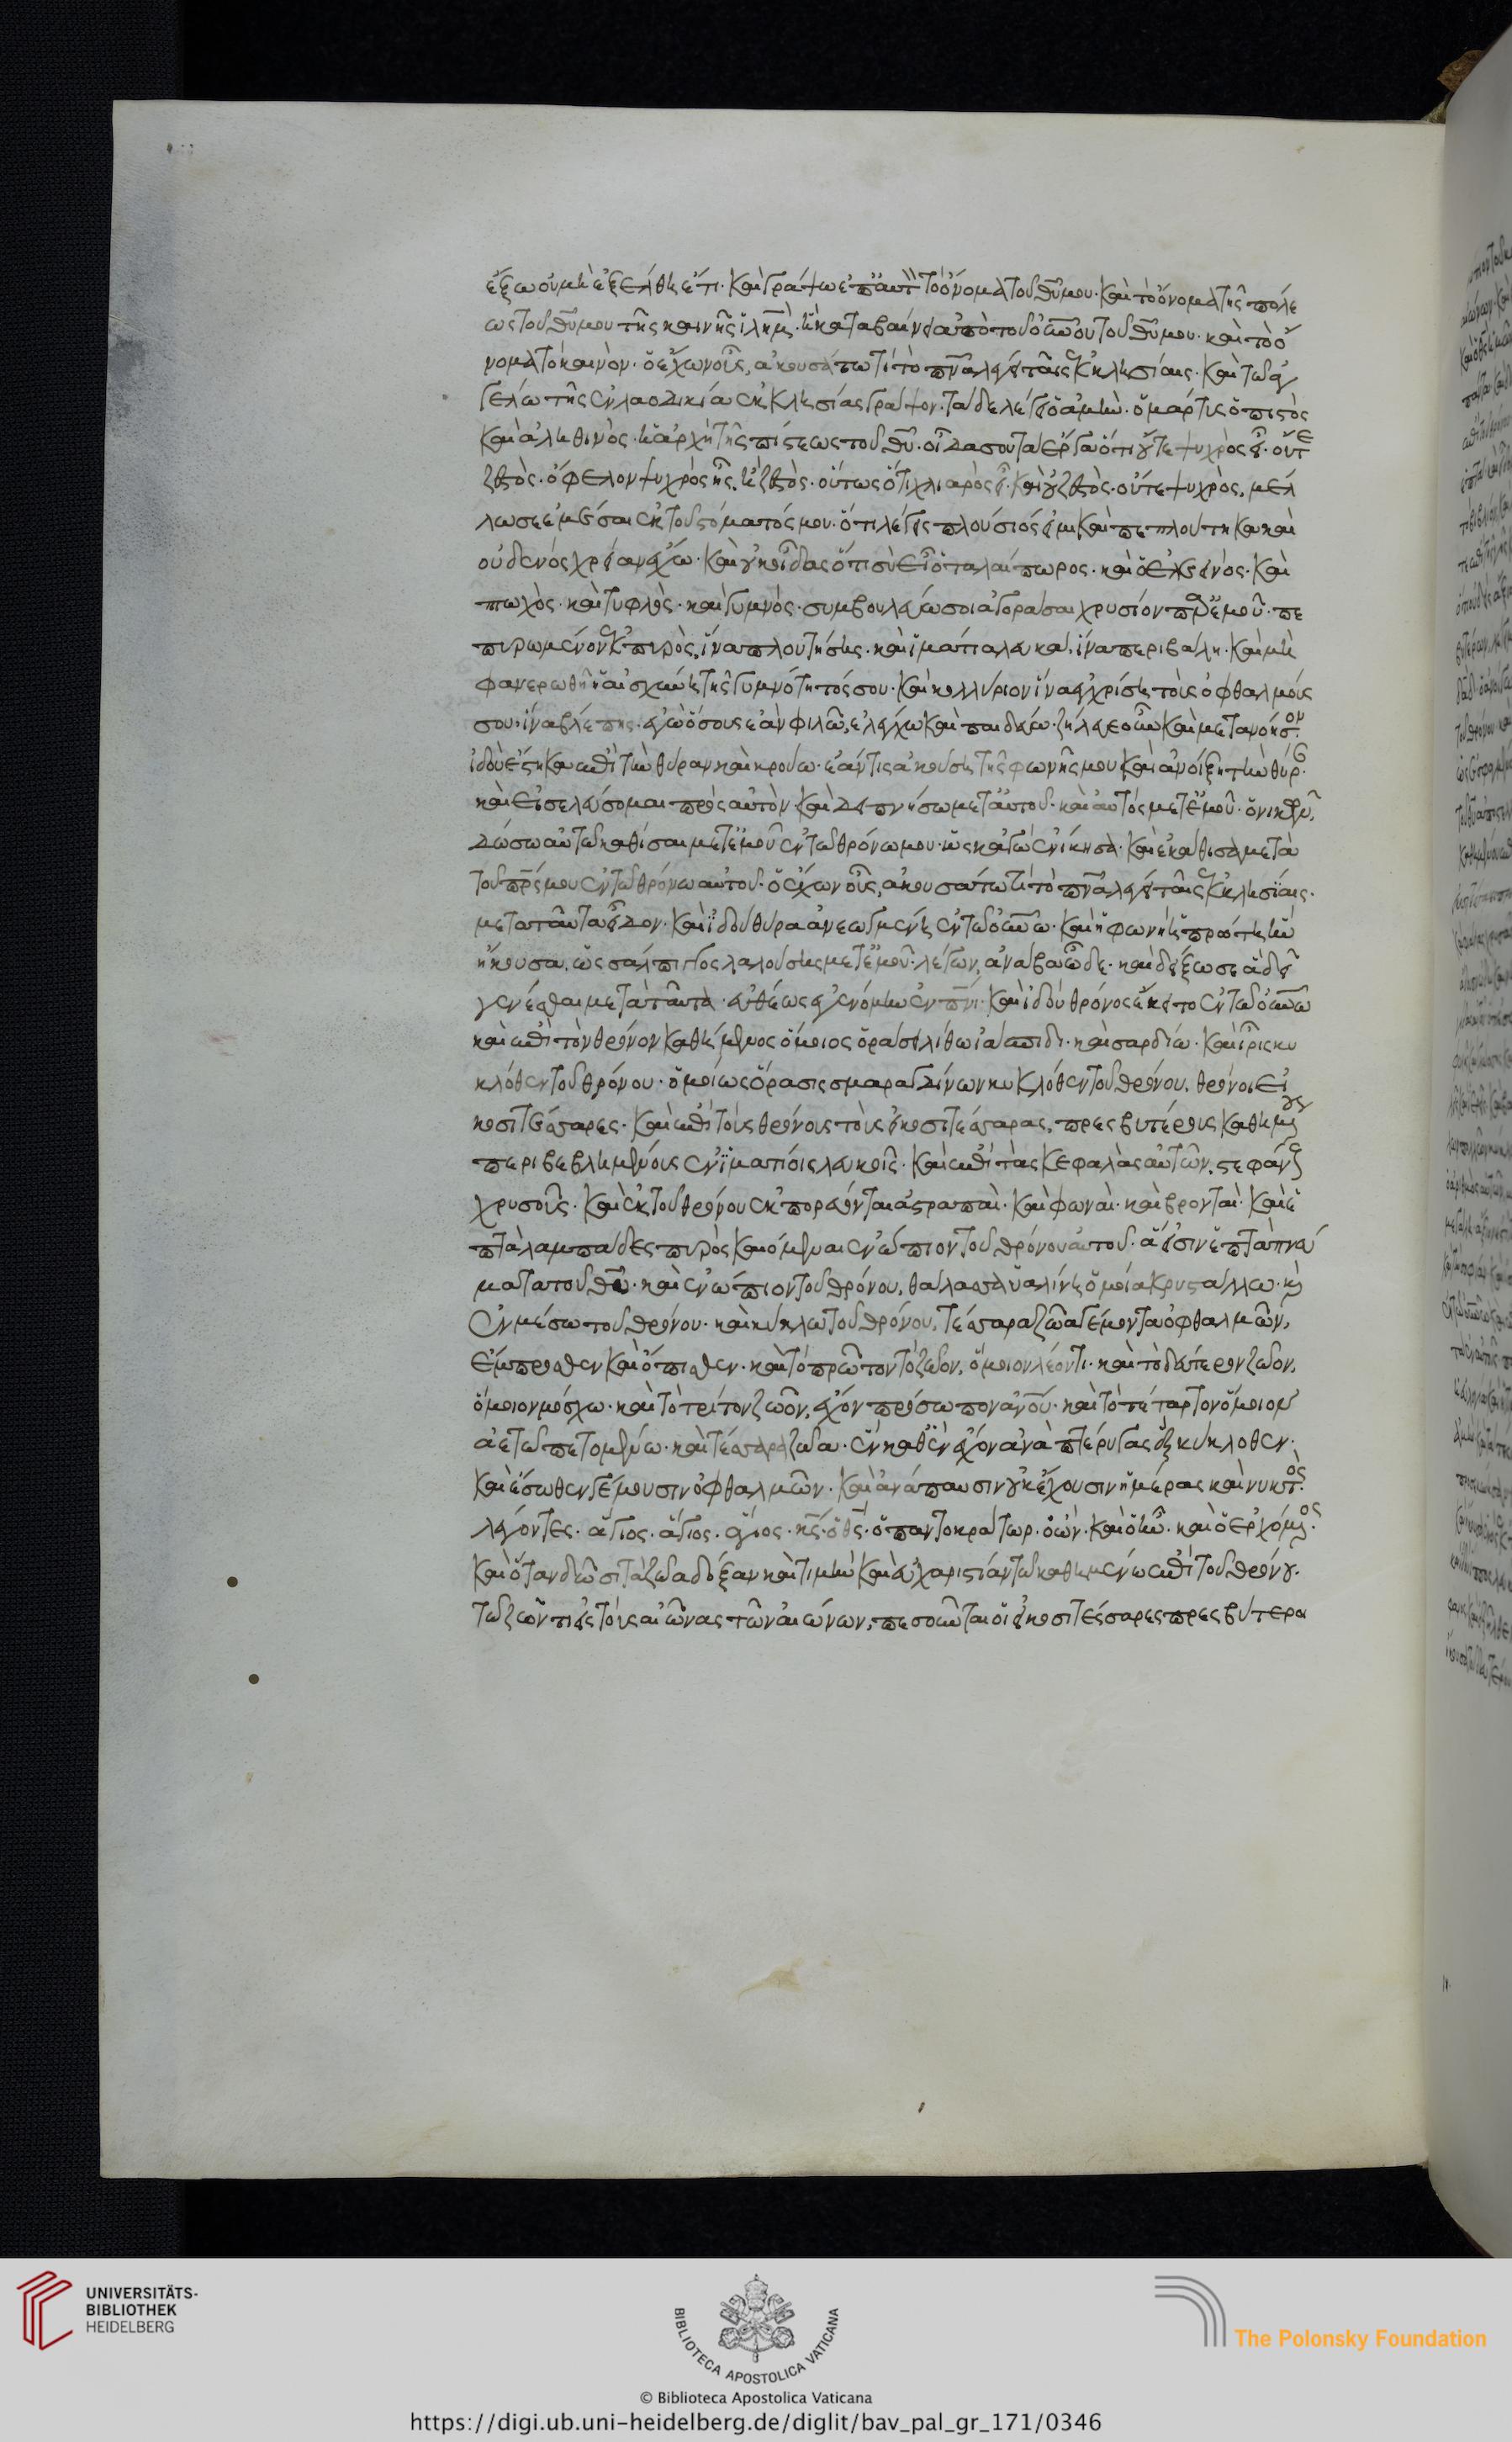 ἔξω οὐ μὴ ἐξέλθῃ ἔτι· καὶ γράψω ἐπ αὐτ̀ τὸ ὄνομα τοῦ θῦ μου· καὶ τὸ ὄνομα τῆς πόλε
ως τοῦ θῦ μου τῆς καινῆς ἱλημ̀· ἡ καταβαίνει ἀπὸ τοῦ οὐνοῦ τοῦ θῦ μου· καὶ τὸ ὄ
νομα τὸ καινὸν· ὁ ἔχων οὖς, ἀκουσάτω τί τὸ πνᾶ λέγει ταῖς ἐκκλησίαις· καὶ τῷ ἀγ
γέλῳ τῆς ἐν λαοδικία ἐκκλησίας γράψον· τάδε λέγει ὁ ἀμὴν· ὁ μάρτις ὁ πιστὸς
καὶ ἀληθινὸς· ἡ ἀρχὴ τῆς πίστεως τοῦ θῦ· οἶδα σου τὰ ἔργα ὅτι οὔτε ψυχρὸς εἶ· οὔτε
ζεστὸς· ὄφελον ψυχρὸς ἦς, ἢ ζεστὸς· οὕτως ὅτι χλιαρὸς εἶ· καὶ οὐ ζεστὸς· οὔτε ψυχρὸς, μέλ
λω σε ἐμέσαι ἐκ τοῦ στόματός μου· ὅτι λέγεις πλούσιός εἰμι καὶ πεπλούτηκα καὶ
οὐδενός χρείαν ἔχω· καὶ οὐκ οἶδας ὅτι σὺ εἶ ὁ ταλαίπωρος· καὶ ὁ ἐλεεινός· καὶ
πτωχὸς· καὶ τυφλὸς· καὶ γυμνὸς· συμβουλεύω σοι ἀγοράσαι χρυσίον παρ ἐμοῦ· πε
πυρωμένον ἐκ πυρὸς, ἵνα πλουτήσης· καὶ ἱμάτια λευκά, ἵνα περιβάλη· καὶ μὴ
φανερωθῆ ἡ αἰσχύνη τῆς γυμνότητός σου· καὶ κολλύριον ἵνα ἐγχρίση τοὺς ὀφθαλμούς
σου· ἵνα βλέπης· ἐγὼ ὅσους ἐὰν φιλῶ, ἐλέγχω καὶ παιδεύω· ζήλευε οὖν καὶ μετανόησον·
ἰδοὺ ἕστηκα ἐπὶ τὴν θύραν καὶ κρούω· ἐάν τις ἀκούση τῆς φωνῆς μου καὶ ἀνοίξη τὴν θύρ·
καὶ εἰσελεύσομαι πρὸς αὐτὸν καὶ δειπνήσω μετ αὐτοῦ· καὶ αὐτός μετ ἐμοῦ· ὁ νικῶν,
δώσω αὐτῷ καθίσαι μετ ἐμοῦ ἐν τῷ θρόνω μου· ὡς κἀγὼ ἐνίκησα· καὶ ἐκάθισα μετὰ
τοῦ πρς μου ἐν τῷ θρόνω αὐτοῦ· ὁ ἔχων οὖς, ἀκουσάτω τί τὸ πνᾶ λέγει ταῖς ἐκκλησίαις·
μετὰ ταῦτα εἶδον· καὶ ἰδοὺ θύρα ἀνεωγμένη ἐν τῷ οὐνῶ· καὶ ἡ φωνὴ ἡ πρώτη ἣν
ἤκουσα, ὡς σάλπιγγος λαλούσης μετ ἐμοῦ· λέγων, ἀνάβα ὧδε· καὶ δείξω σε ἃ δεῖ
γενέσθαι μετὰ ταῦτα· εὐθέως ἐγενόμην ἐν πνι· καὶ ἰδοὺ θρόνος ἔκειτο ἐν τῷ οὐνῶ
καὶ ἐπὶ τὸν θρόνον καθήμενος ὅμοιος ὁράσει λίθω ἰάσπιδι· καὶ σαρδίω· καὶ ἶρις κυ
κλόθεν τοῦ θρόνου· ὁμοίως ὅρασις σμαραγδίνων κυκλόθεν τοῦ θρόνου, θρόνοι εἰ
κοσιτέσσαρες· καὶ ἐπὶ τοὺς θρόνους τοὺς εἰκοσιτέσσαρας, πρεσβυτέρους καθημένους
περιβεβλημένους ἐν ἱματίοις λευκοῖς· καὶ ἐπὶ τὰς κεφαλὰς αὐτῶν, στεφάνους
χρυσοῦς· καὶ ἐκ τοῦ θρόνου ἐκπορεύονται ἀστραπαὶ· καὶ φωναὶ· καὶ βρονταὶ· καὶ ἑ
πτὰ λαμπάδες πυρὸς καιόμεναι ἐνώπιον τοῦ θρόνου αὐτοῦ· ἅ εἰσιν ἑπτὰ πνεύ
ματα τοῦ θῦ· καὶ ἐνώπιον τοῦ θρόνου, θάλασσα ὑαλίνη ὁμοία κρυστάλλω· καὶ
ἐν μέσω τοῦ θρόνου· καὶ κύκλω τοῦ θρόνου, τέσσαρα ζῶα γέμοντα ὀφθαλμῶν,
ἔμπροσθεν καὶ ὄπισθεν· καὶ τὸ πρῶτον τὸ ζῶον, ὅμοιον λέοντι· καὶ τὸ δεύτερον ζῶον,
ὅμοιον μόσχω· καὶ τὸ τρίτον ζῶον, ἔχον πρόσωπον ἀνοῦ· καὶ τὸ τέταρτον ὅμοιον
ἀετῷ πετομένω· καὶ τέσσαρα ζῶα· ἓν καθ ἓν ἔχον ἀνὰ πτέρυγας ἓξ κύκλοθεν·
καὶ ἔσωθεν γέμουσιν ὀφθαλμῶν· καὶ ἀνάπαυσιν οὐκ ἔχουσιν ἡμέρας καὶ νυκτὸς·
λέγοντες· ἅγιος· ἅγιος· ἅγιος· κς· ὁ θς· ὁ παντοκράτωρ· ὁ ὤν· καὶ ὁ ἦν· καὶ ὁ ἐρχόμενος·
καὶ ὅταν δῶσι τὰ ζῶα δόξαν καὶ τιμὴν καὶ εὐχαριστίαν τῷ καθημένω ἐπὶ τοῦ θρόνου·
τῷ ζῶντι εἰς τοὺς αἰῶνας τῶν αἰώνων, πεσοῦνται οἱ εἰκοσιτέσσαρες πρεσβύτεροι
UNIVERSITÄTS-
BIBLIOTHEK
HEIDELBERG
BIBLIOTECA APOSTOLICA VATICANA
The Polonsky Foundation
© Biblioteca Apostolica Vaticana
https://digi.ub.uni-heidelberg.de/diglit/bav_pal_gr_171/0346